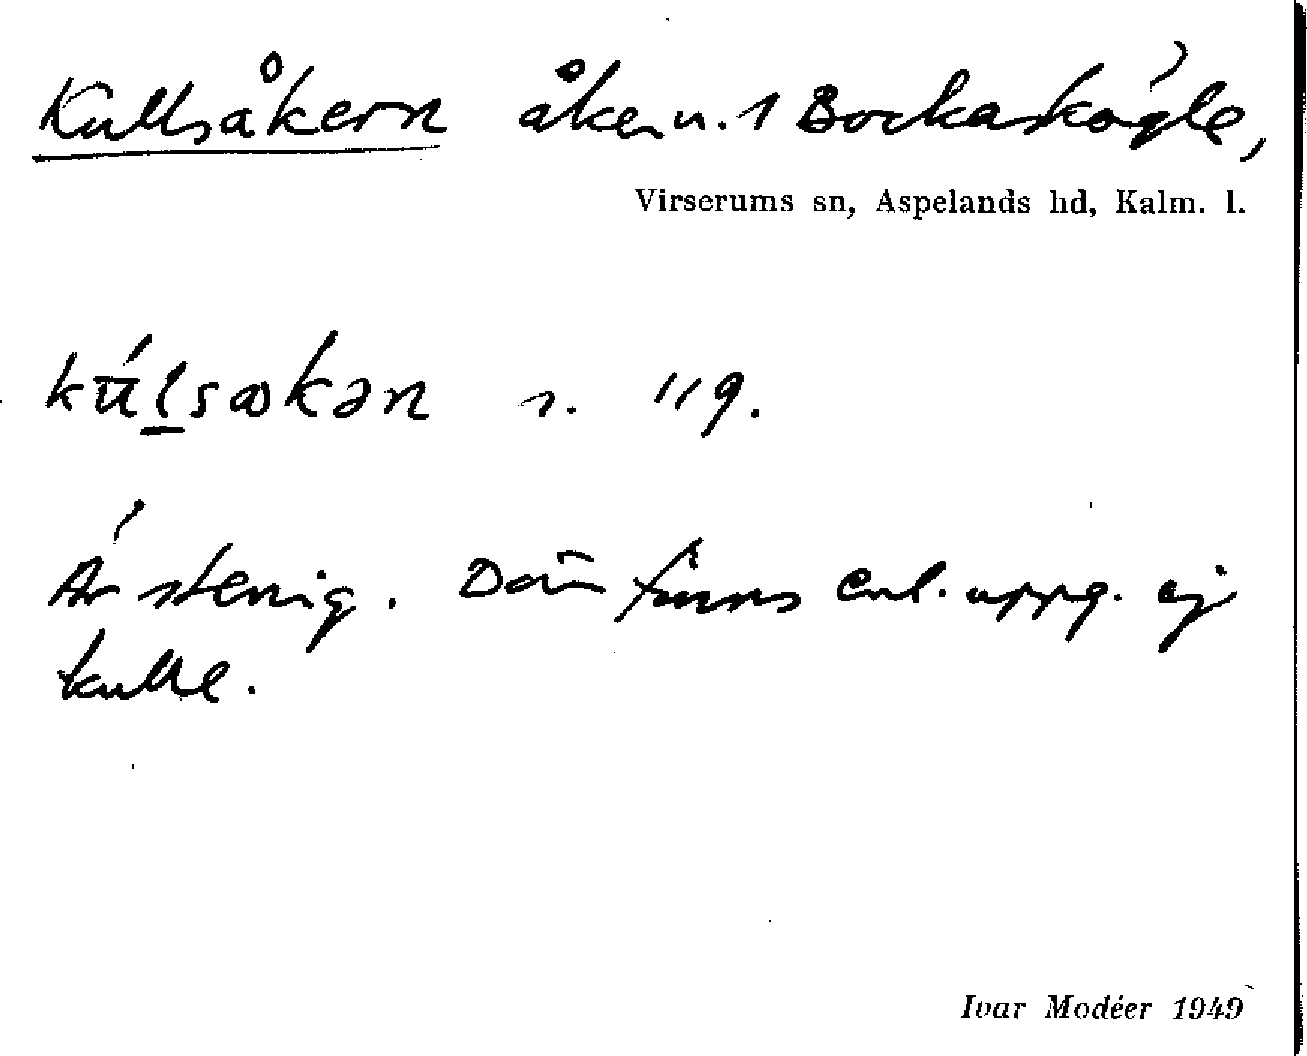 Kullsåkern åker u. 1 Bockaskögle,
Virserums sn, Aspelands hd, Kalm. l.
kū́lsαkən s. 119.
Är stenig. Där finns enl. uppg. ej
kulle.
Ivar Modéer 1949